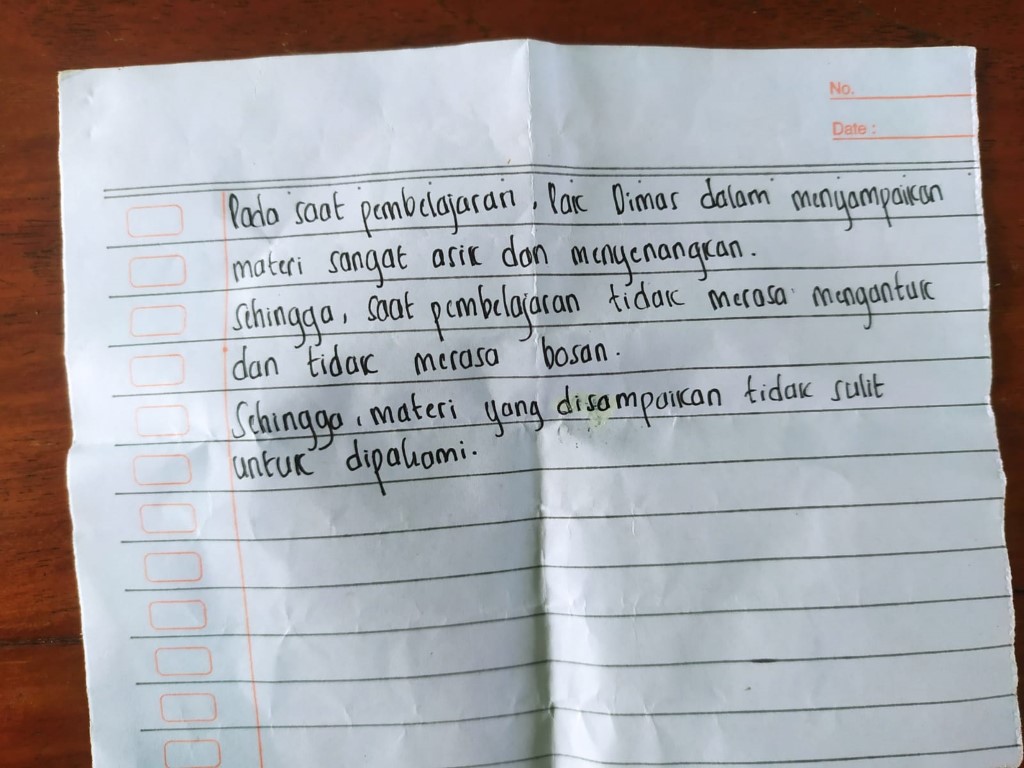 No.
Date :
Pada saat pembelajaran, Pak Dimas dalam menyampaikan
materi sangat asik dan menyenangkan.
Sehingga, saat pembelajaran tidak merasa mengantuk
dan tidak merasa bosan.
Sehingga, materi yang disampaikan tidak sulit
untuk dipahami.